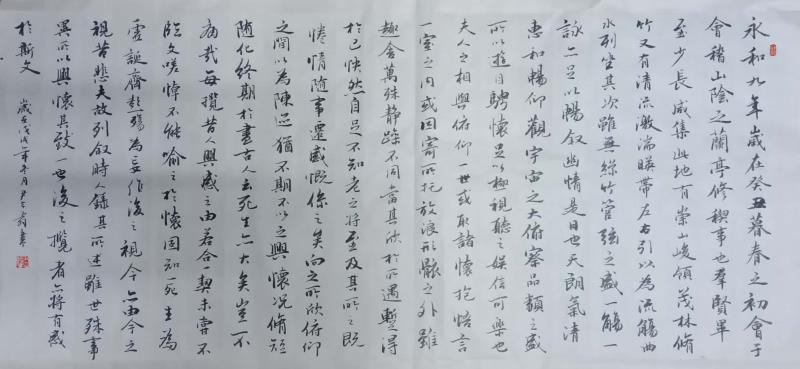 永和九年歲在癸丑暮春之初會于
會稽山陰之蘭亭修稧事也羣賢畢
至少長咸集此地有崇山峻領茂林脩
竹又有清流激湍暎帶左右引以為流觴曲
水列坐其次雖無絲竹管弦之盛一觴一
詠亦足以暢叙幽情是日也天朗氣清
惠和暢仰觀宇宙之大俯察品類之盛
所以遊目騁懷足以極視聽之娛信可樂也
夫人之相與俯仰一世或取諸懷抱悟言
一室之內或因寄所托放浪形骸之外雖
趣舍萬殊靜躁不同當其欣於所遇暫得
於己怏然自足不知老之將至及其所之既
惓情隨事遷感慨係之矣向之所欣俯仰
之間以為陳迹猶不能不以之興懷況脩短
隨化終期於盡古人云死生亦大矣豈不
痛哉每攬昔人興感之由若合一契未嘗不
臨文嗟悼不能喻之於懷固知一死生為
虛誕齊彭殤為妄作後之視今亦由今之
視昔悲夫故列叙時人錄其所述雖世殊事
異所以興懷其致一也後之攬者亦將有感
於斯文 歲在戊戌年冬月 書